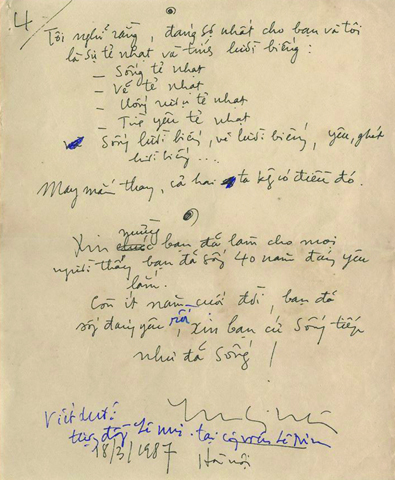 4/
Tôi nghĩ rằng, đáng sợ nhất cho bạn và tôi
là sự tẻ nhạt và tính lười biếng:
– Sống tẻ nhạt
– Vẽ tẻ nhạt
– Uống rượu tẻ nhạt
– Tình yêu tẻ nhạt
Sống lười biếng, vẽ lười biếng, yêu, ghét
lười biếng...
May mắn thay, cả hai ta kg có điều đó.
Xin mừng bạn đã làm cho mọi
người thấy bạn đã sống 40 năm đáng yêu
lắm.
Còn ít năm cuối đời, bạn đã
sống đáng yêu rồi, xin bạn cứ sống tiếp
như đã sống!
Viết dưới
tại
18/3/1987 Hà nội